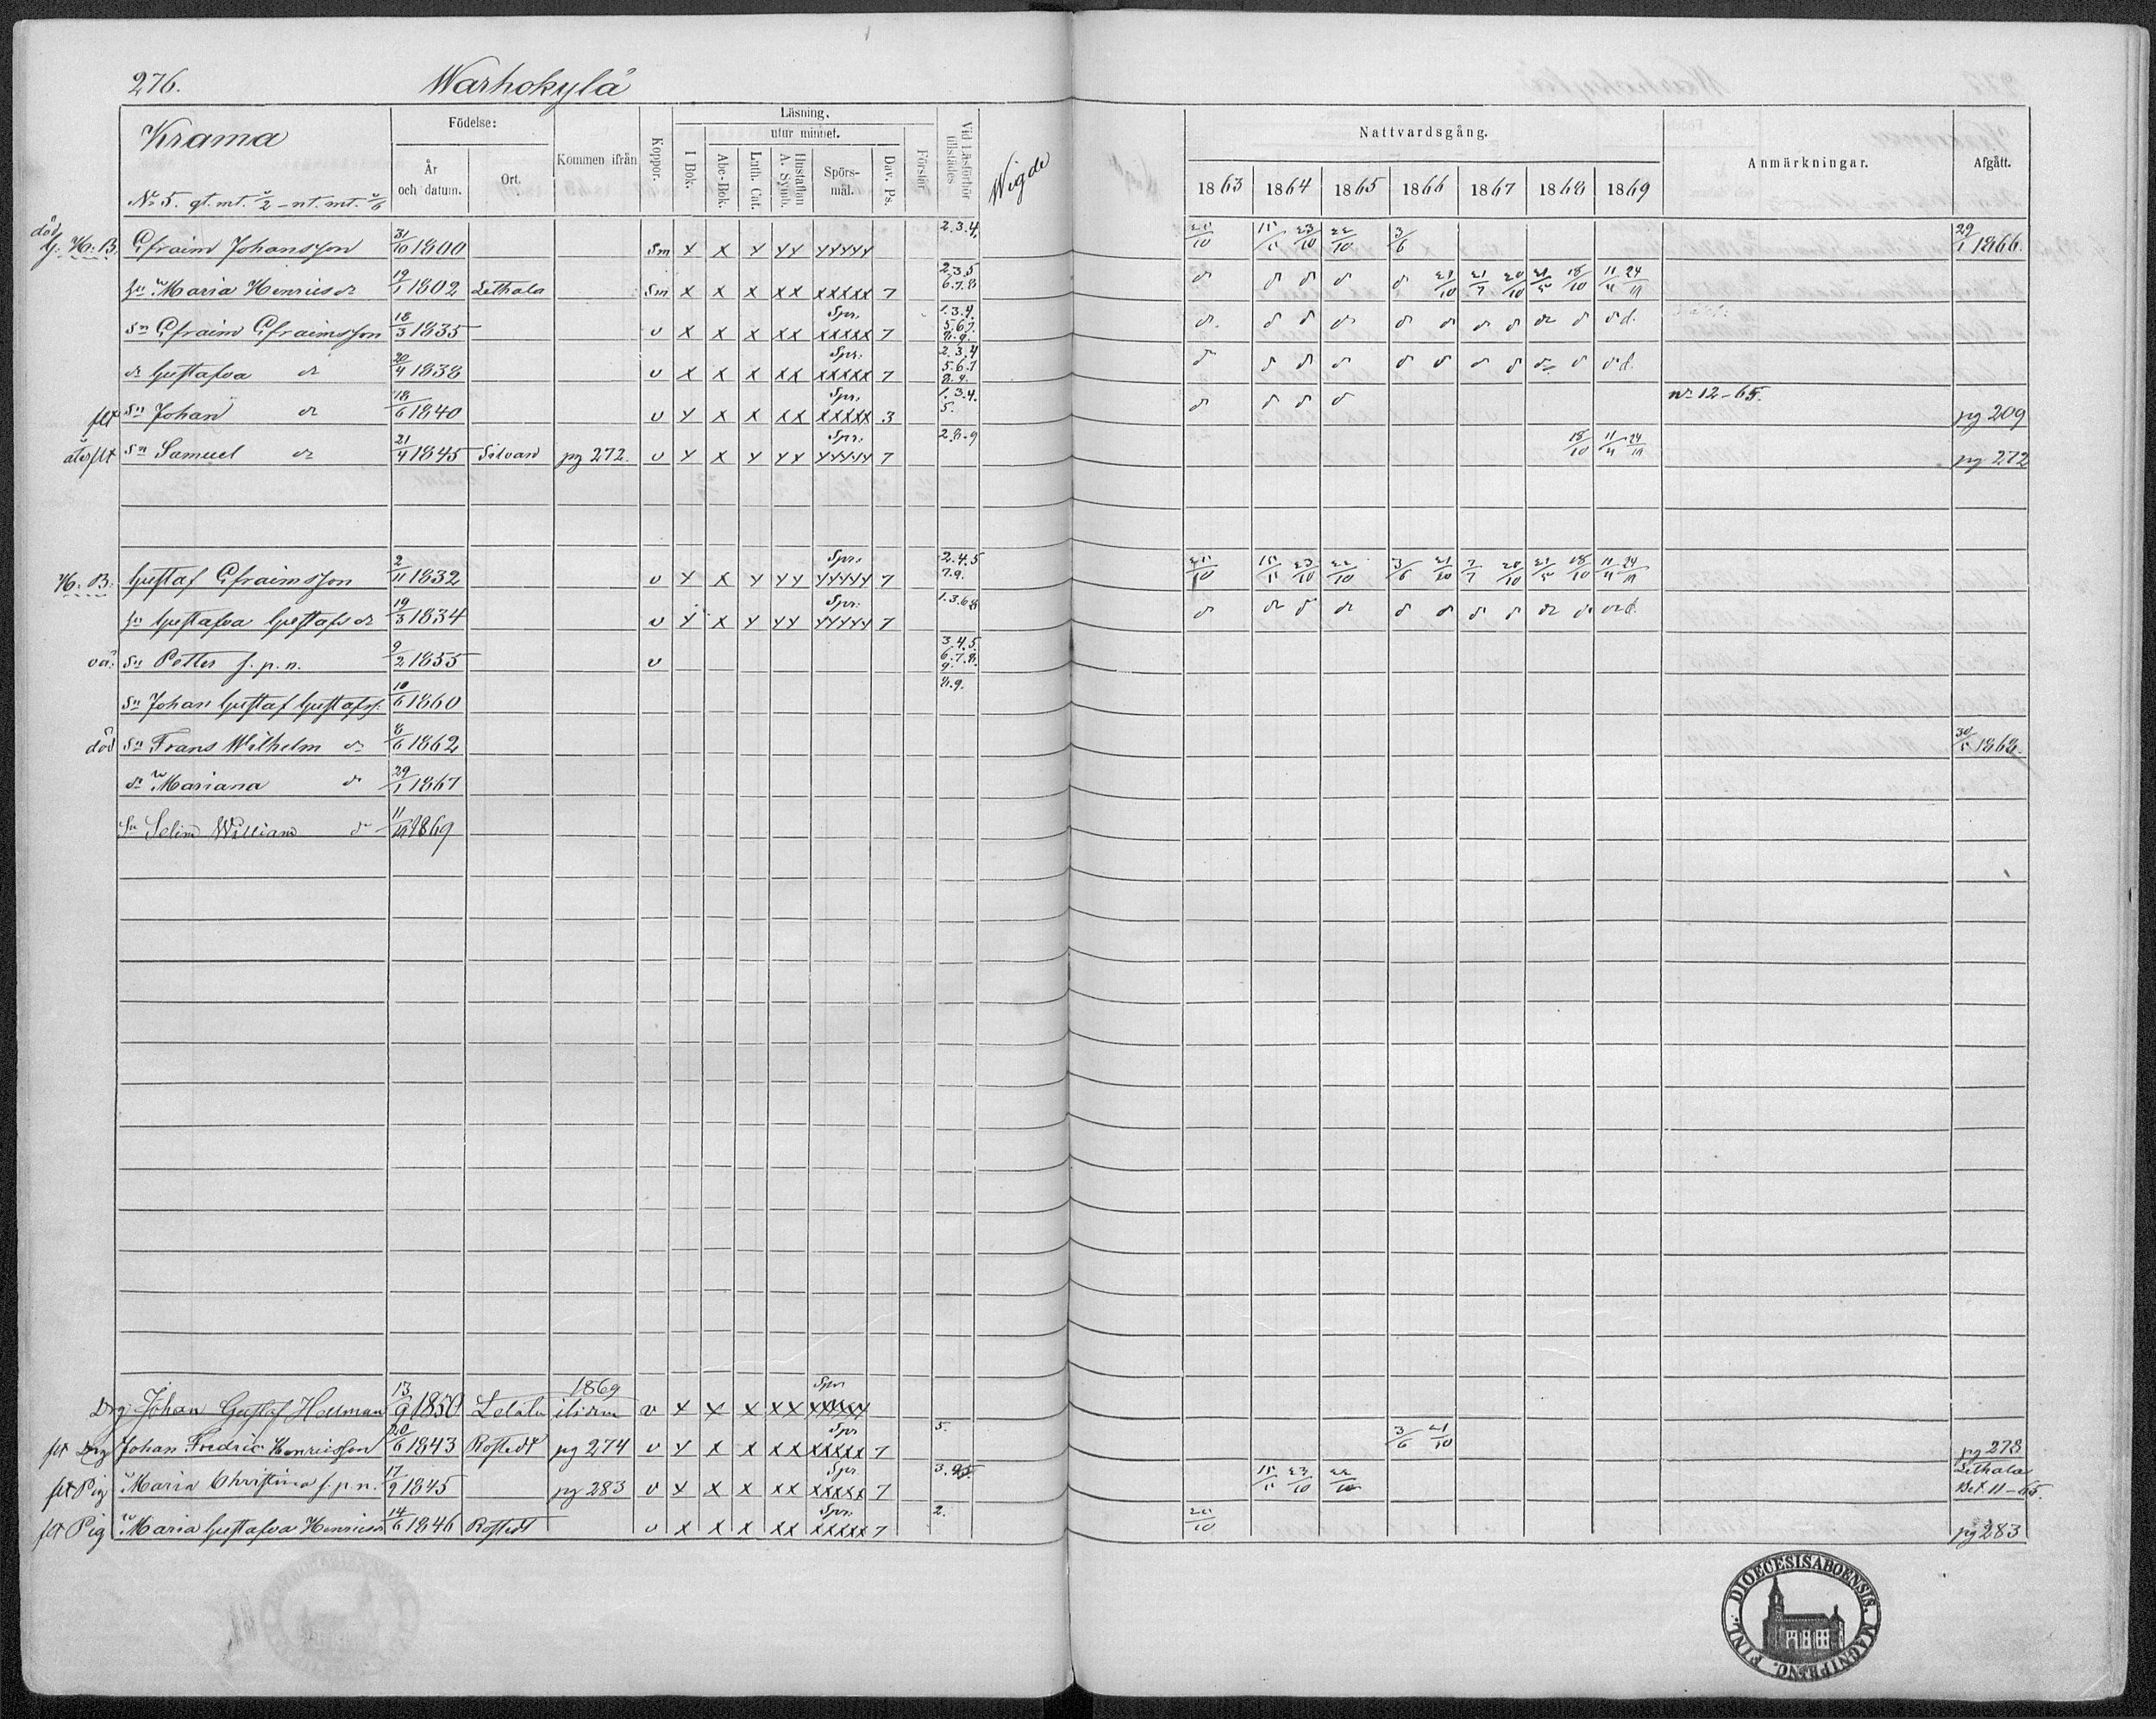 276. Warhokylä
Krama
No 5. gt. mt. 1/2 - nt. mt.
Födelse: År och datum. Ort. Kommen ifrån Koppor. Läsning. I Bok. utur minnet. Abc-Bok. Luth. Cat. Hustaflan A. Symb. Spörsmål. Dav. Ps. Förstår Vid Läsförhör tillstädes Wigde
Nattvardsgång. 1863 1864 1865 1866 1867 1868 1869 Anmärkningar. Afgått.
död
G. H. B. Efraim Johansson 31/10 1800 Sm x x x xx xxxxx 2.3.4. 25/10 15/5 23/10 22/10 3/6 29/1 1866.
hu Maria Henricsdr 19/1 1802 Lethala Sm x x x xx xxxxx 7 2.3.5 6.7.8
Sn Efraim Efraimsson 18/3 1835 v x x x xx Spr. xxxxx 7 1.3.4. 5.6.7. 8.9.
dr Gustafva dr 20/4 1838 v x x x xx Spr. xxxxx 7 2.3.4 5.6.7 8.9.
flt Sn Johan dr 18/6 1840 v x x x xx Spr. xxxxx 3 1.3.4. 5. nr 12-65. pg 209
åter flt Sn Samuel dr 21/4 1845 Silvan pg 272. v x x x xx Spr. xxxxx 7 2.8.9 18/10 11/4 24/10 pg 272
H. B. Gustaf Efraimsson 2/11 1832 v x x x xx Spr. xxxxx 7 2.4.5 7.9.
hu Gustafva Gustafsdr 19/3 1834 v x x x xx Spr. xxxxx 7 1.3.6.8
oä. Sn Petter f.p.n. 9/2 1855 v 3.4.5. 6.7.8. 9.
Sn Johan Gustaf Gustafss. 10/6 1860 8.9.
död Sn Frans Wilhelm dr 8/6 1862 30/5 1868.
dr Mariana dr 29/1 1867
Sn Selim William dr 11/10 1869
Drg Johan Gustaf Hellman 13/9 1850 1869 v x x x xx Spr xxxxx
flt Drg Johan Fredric Henricsson 20/6 1843 Rostedt pg 274 v x x x xx Spr xxxxx 7 5. 3/6 21/10 pg 278
flt Pig Maria Christina f.p.n. 17/9 1845 pg 283 v x x x xx Spr xxxxx 7 3.4.5. 15/5 23/10 22/10 Lethala Bet. 11-65.
flt Pig Maria Gustafva Henricsdr 14/6 1846 Rostedt v x x x xx Spr. xxxxx 7 2. 25/10 pg 283
FINL. DIOECESIS ABOENSIS. MAGNI PRINC.